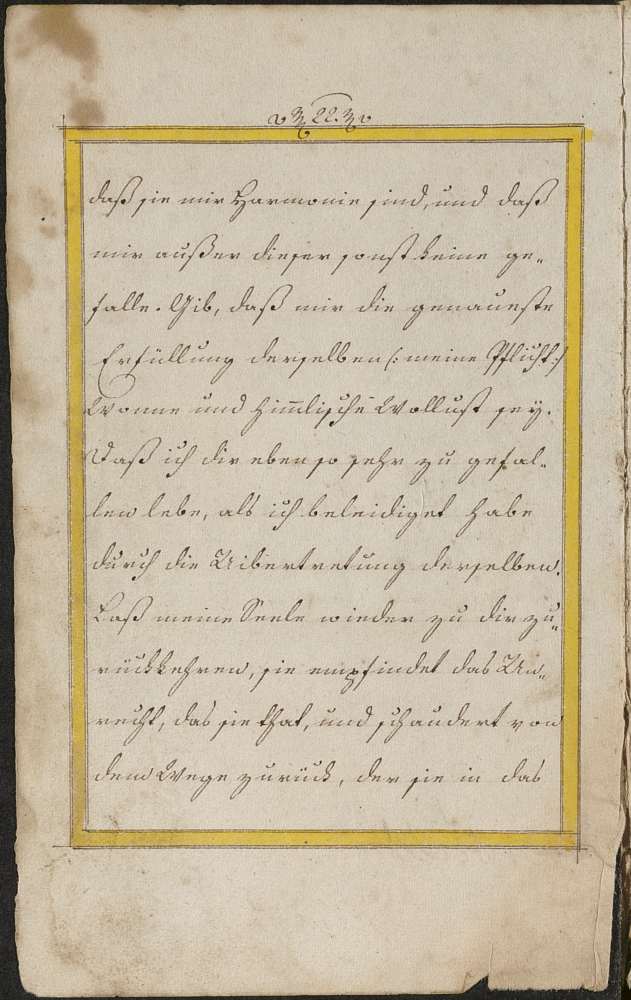 22.
daß sie mir Harmonie sind, und daß
mir außer dieser sonst keine ge-
falle. Gib, daß mir die genaueste
Erfüllung derselben (: meine Pflicht :)
Wonne und him̄lische Wollust sey.
Daß ich dir eben so sehr zu gefal-
len lebe, als ich beleidiget habe
durch die Uibertretung derselben.
Laß meine Seele wieder zu dir zu-
rückkehren, sie empfindet das Un-
recht, das sie that, und schaudert von
dem Wege zurück, der sie in das